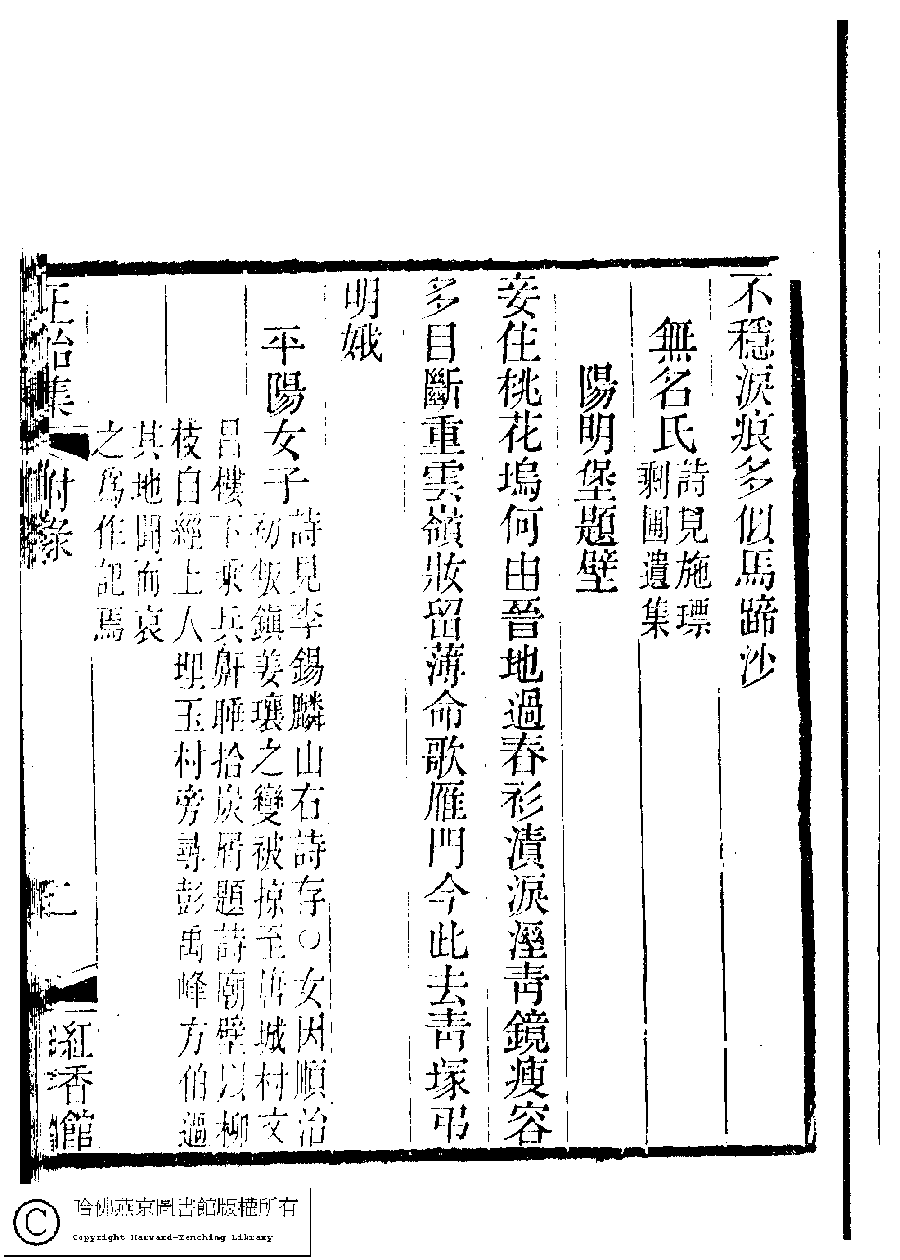 不穩淚痕多似馬蹄沙
無名氏
詩見施瑮
剩圃遺集
陽明堡題壁
妾住桃花塢何由晉地過春衫漬淚溼青鏡瘦容
多目斷重雲嶺妝留薄命歌雁門今此去青塚弔
明娥
平陽女子
詩見李錫麟山右詩存○女因順治
初叛鎮姜瓖之變被掠至唐城村文
呂樓下乘兵鼾睡拾炭屑題詩廟壁以柳
枝自經土人埋玉村旁尋彭禹峰方伯過
其地聞而哀
之為作記焉
正始集
附錄
二
紅香館
哈佛燕京圖書館版權所有
Copyright Harvard-Yenching Library